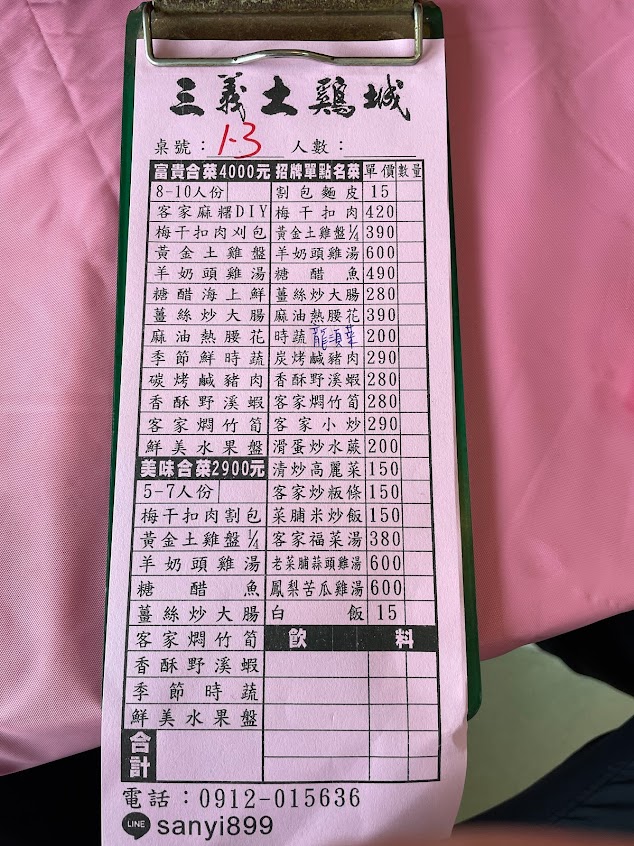 三義土鷄城
桌號：1-3 人數：
富貴合菜4000元 招牌單點名菜 單價 數量
8-10人份 割包麵皮 15
客家麻糬DIY 梅干扣肉 420
梅干扣肉刈包 黃金土雞盤¼ 390
黃金土雞盤 羊奶頭雞湯 600
羊奶頭雞湯 糖醋魚 490
糖醋海上鮮 薑絲炒大腸 280
薑絲炒大腸 麻油熱腰花 390
麻油熱腰花 時蔬 龍須菜 200
季節鮮時蔬 炭烤鹹豬肉 290
碳烤鹹豬肉 香酥野溪蝦 280
香酥野溪蝦 客家燜竹筍 280
客家燜竹筍 客家小炒 290
鮮美水果盤 滑蛋炒水蕨 200
美味合菜2900元 清炒高麗菜 150
5-7人份 客家炒粄條 150
梅干扣肉割包 菜脯米炒飯 150
黃金土雞盤¼ 客家福菜湯 380
羊奶頭雞湯 老菜脯蒜頭雞湯 600
糖醋魚 鳳梨苦瓜雞湯 600
薑絲炒大腸 白飯 15
客家燜竹筍 飲料
香酥野溪蝦
季節時蔬
鮮美水果盤
合計
電話：0912-015636
LINE sanyi899